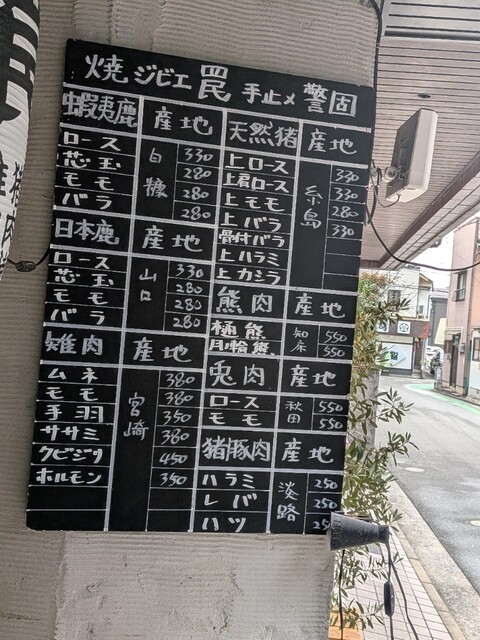 焼ジビエ 罠 手止メ 警固
蝦夷鹿 産地
ロース 白糠 330
芯玉 280
モモ 280
バラ 280
日本鹿 産地
ロース 山口 330
芯玉 280
モモ 280
バラ 280
雉肉 産地
ムネ 宮崎 380
モモ 380
手羽 350
ササミ 380
クビジリ 450
ホルモン 350
天然猪 産地
上ロース 糸島 330
上肩ロース 330
上モモ 280
上バラ 330
骨付バラ
上ハラミ
上カシラ
熊肉 産地
樋熊 知床 550
月輪熊 550
兎肉 産地
ロース 秋田 550
モモ 550
猪豚肉 産地
ハラミ 淡路 250
レバ 250
ハツ 250
猪肉